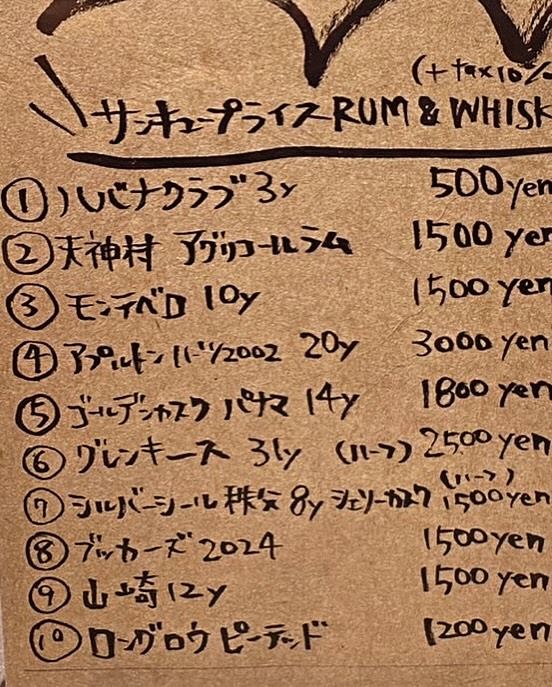 (+tax10%
サンキュープライス RUM & WHISK
① ハバナクラブ 3y 500yen
② 天神村 アグリコールラム 1500 yen
③ モンテベロ 10y 1500 yen
④ アプルトン ハーツ2002 20y 3000 yen
⑤ ゴールデンカスク パナマ 14y 1800 yen
⑥ グレンキース 31y (ハーフ) 2500 yen
⑦ シルバーシール 秩父 8y シェリーカスク (ハーフ) 1500yen
⑧ ブッカーズ 2024 1500yen
⑨ 山崎 12y 1500yen
⑩ ロングロウ ピーテッド 1200 yen